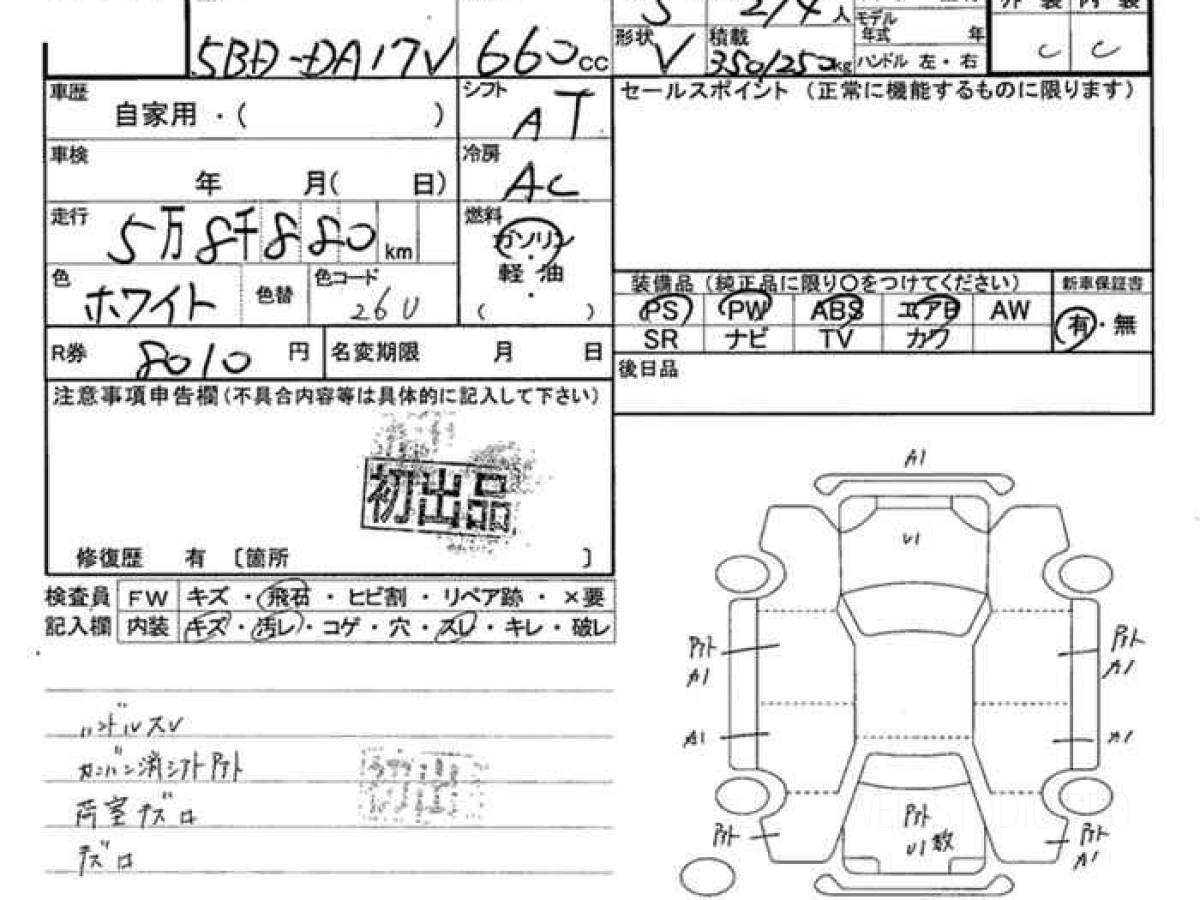 5 2/4 人
モデル年式 年
外装 内装
C C
5BD-DA17V 660cc
形状 V
積載 350/250kg
ハンドル 左・右
車歴
自家用・( )
シフト
AT
セールスポイント (正常に機能するものに限ります)
車検
年 月( 日)
冷房
AC
走行
5万8千880 km
燃料
ガソリン
・
軽油
・
( )
色
ホワイト
色替
色コード
26U
装備品 (純正品に限り○をつけてください)
新車保証書
PS PW ABS エアB AW
有・無
SR ナビ TV カワ
R券 8010 円
名変期限 月 日
後日品
注意事項申告欄(不具合内容等は具体的に記入して下さい)
初出品
修復歴 有 〔箇所 〕
検査員 FW キズ・飛石・ヒビ割・リペア跡・×要
記入欄 内装 キズ・汚レ・コゲ・穴・スレ・キレ・破レ
A1
U1
アト
A1
アト
A1
A1
A1
ハンドルスレ
カンバン消シアトアト
荷室キズ
キズ
アト
アト
U1 数
アト
A1